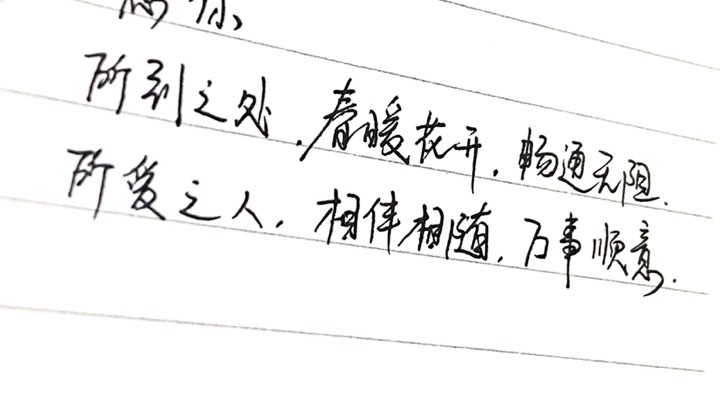 愿你、
所到之处,春暖花开,畅通无阻.
所爱之人,相伴相随,万事顺意.